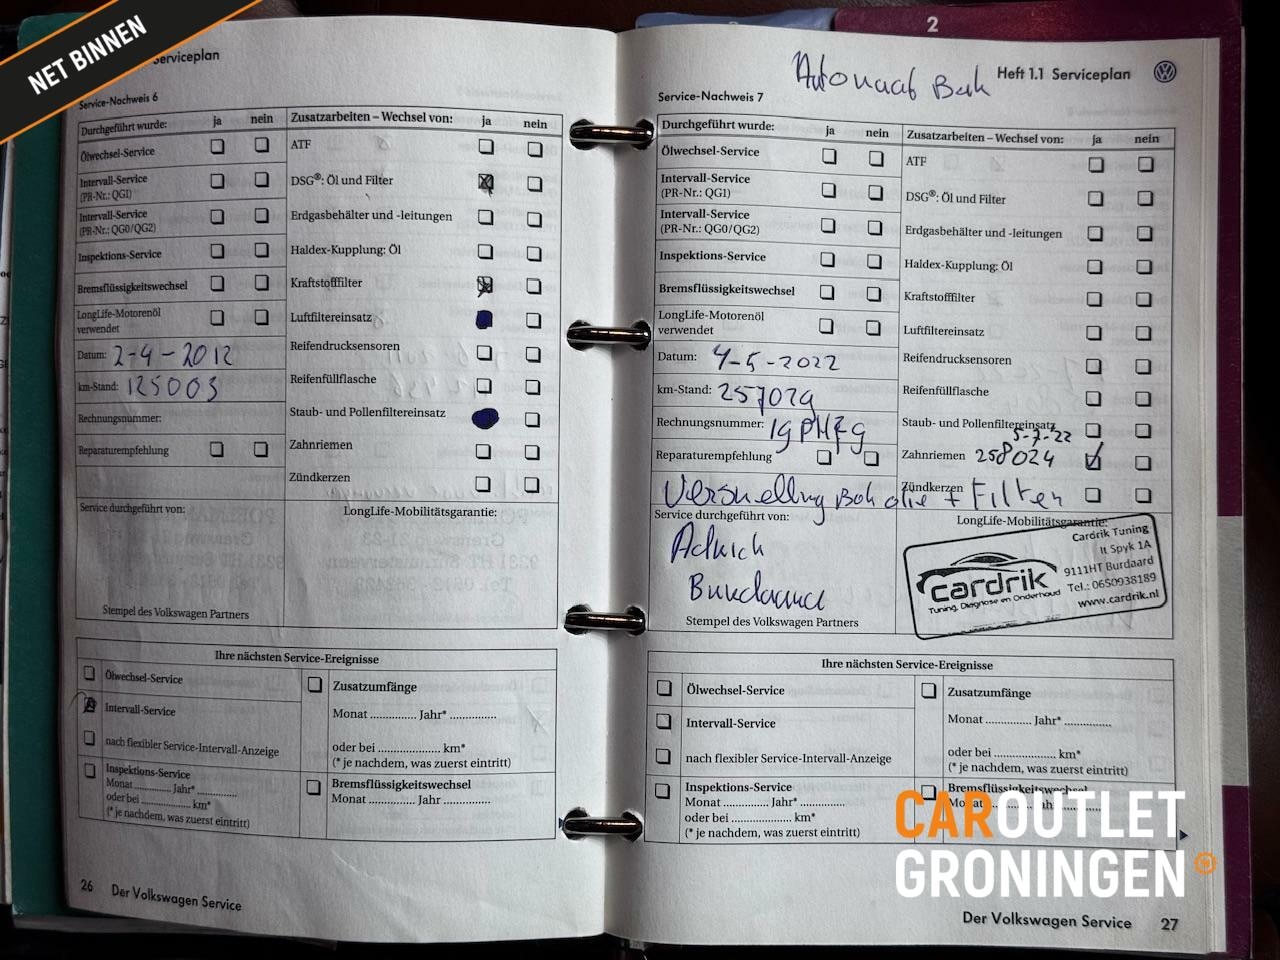 NET BINNEN
Serviceplan
Service-Nachweis 6
Durchgeführt wurde: ja nein
Ölwechsel-Service
Intervall-Service
(PR-Nr.: QG1)
Intervall-Service
(PR-Nr.: QG0/QG2)
Inspektions-Service
Bremsflüssigkeitswechsel
LongLife-Motorenöl
verwendet
Datum: 2-4-2012
km-Stand: 125003
Rechnungsnummer:
Reparaturempfehlung
Zusatzarbeiten – Wechsel von: ja nein
ATF
DSG®: Öl und Filter
Erdgasbehälter und -leitungen
Haldex-Kupplung: Öl
Kraftstofffilter
Luftfiltereinsatz
Reifendrucksensoren
Reifenfüllflasche
Staub- und Pollenfiltereinsatz
Zahnriemen
Zündkerzen
Service durchgeführt von:
LongLife-Mobilitätsgarantie:
Stempel des Volkswagen Partners
Ihre nächsten Service-Ereignisse
Ölwechsel-Service
Intervall-Service
nach flexibler Service-Intervall-Anzeige
Inspektions-Service
Monat ............ Jahr* ............
oder bei .................... km*
(* je nachdem, was zuerst eintritt)
Zusatzumfänge
Monat .............. Jahr* ..............
oder bei .................... km*
(* je nachdem, was zuerst eintritt)
Bremsflüssigkeitswechsel
Monat .............. Jahr ..............
26 Der Volkswagen Service
2
Heft 1.1 Serviceplan
Service-Nachweis 7
Durchgeführt wurde: ja nein
Ölwechsel-Service
Intervall-Service
(PR-Nr.: QG1)
Intervall-Service
(PR-Nr.: QG0/QG2)
Inspektions-Service
Bremsflüssigkeitswechsel
LongLife-Motorenöl
verwendet
Datum: 4-5-2022
km-Stand: 257029
Rechnungsnummer:
Reparaturempfehlung
Zusatzarbeiten – Wechsel von: ja nein
ATF
DSG®: Öl und Filter
Erdgasbehälter und -leitungen
Haldex-Kupplung: Öl
Kraftstofffilter
Luftfiltereinsatz
Reifendrucksensoren
Reifenfüllflasche
Staub- und Pollenfiltereinsatz
5-7-22
Zahnriemen 258024
Zündkerzen
Versnelling Bak olie + Filter
Service durchgeführt von:
LongLife-Mobilitätsgarantie:
Cardrik Tuning
It Spyk 1A
9111HT Burdaard
Tel.: 0650938189
www.cardrik.nl
Cardrik
Tuning, Diagnose en Onderhoud
Stempel des Volkswagen Partners
Ihre nächsten Service-Ereignisse
Ölwechsel-Service
Intervall-Service
nach flexibler Service-Intervall-Anzeige
Inspektions-Service
Monat ............ Jahr* ............
oder bei .................... km*
(* je nachdem, was zuerst eintritt)
Zusatzumfänge
Monat .............. Jahr* ..............
oder bei .................... km*
(* je nachdem, was zuerst eintritt)
Bremsflüssigkeitswechsel
CAROUTLET
GRONINGEN
Der Volkswagen Service 27